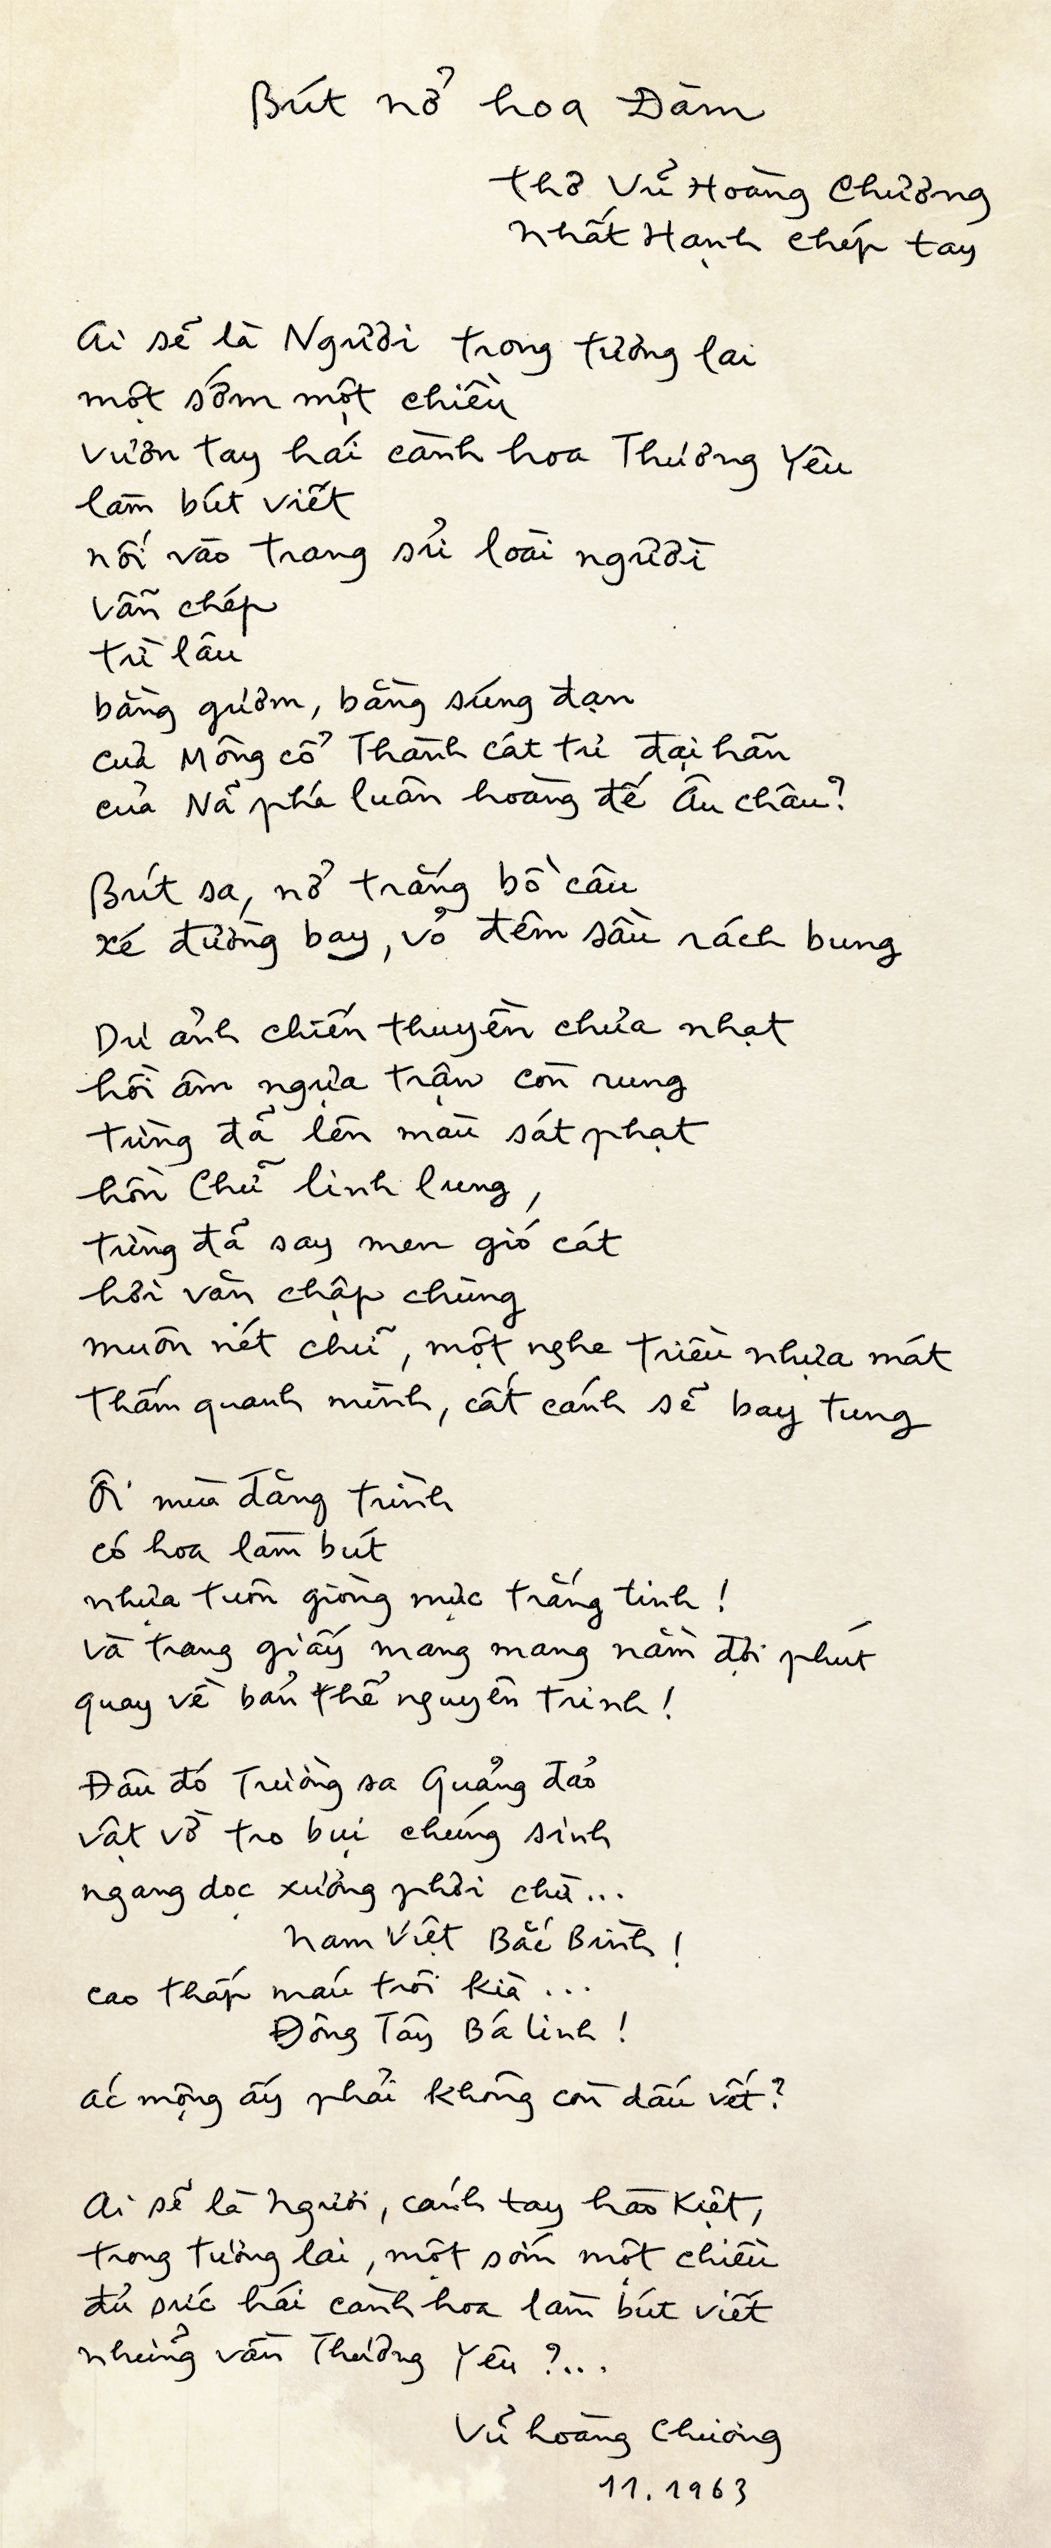 Bút nở hoa Đàm
thơ Vũ Hoàng Chương
Nhất Hạnh chép tay
Ai sẽ là Người trong tương lai
một sớm một chiều
vươn tay hái cành hoa Thương Yêu
làm bút viết
nối vào trang sử loài người
vẫn chép
từ lâu
bằng gươm, bằng súng đạn
của Mông cổ Thành cát tư đại hãn
của Nã phá luân hoàng đế Âu châu?
Bút sa, nở trắng bồ câu
xé đường bay, vỏ đêm sầu rách bung
Dư ảnh chiến thuyền chưa nhạt
hồi âm ngựa trận còn rung
từng đã lên màu sát phạt
hồn Chữ linh lung,
từng đã say men gió cát
hơi vần chập chùng
muôn nét chữ, một nghe triều nhựa mát
thấm quanh mình, cất cánh sẽ bay tung
Ôi mùa đăng trình
có hoa làm bút
nhựa tuôn giòng mực trắng tinh!
và trang giấy mang mang nằm đợi phút
quay về bản thể nguyên trinh!
Đâu đó Trường sa Quảng đảo
vật vờ tro bụi chúng sinh
ngang dọc xương phơi chừ...
Nam Việt Bắc Bình!
cao thấp máu trôi kìa...
Đông Tây Bá linh!
ác mộng ấy phải không còn dấu vết?
Ai sẽ là người, cánh tay hào kiệt,
trong tương lai, một sớm một chiều
đủ sức hái cành hoa làm bút viết
những vần Thương Yêu?...
Vũ hoàng Chương
11.1963